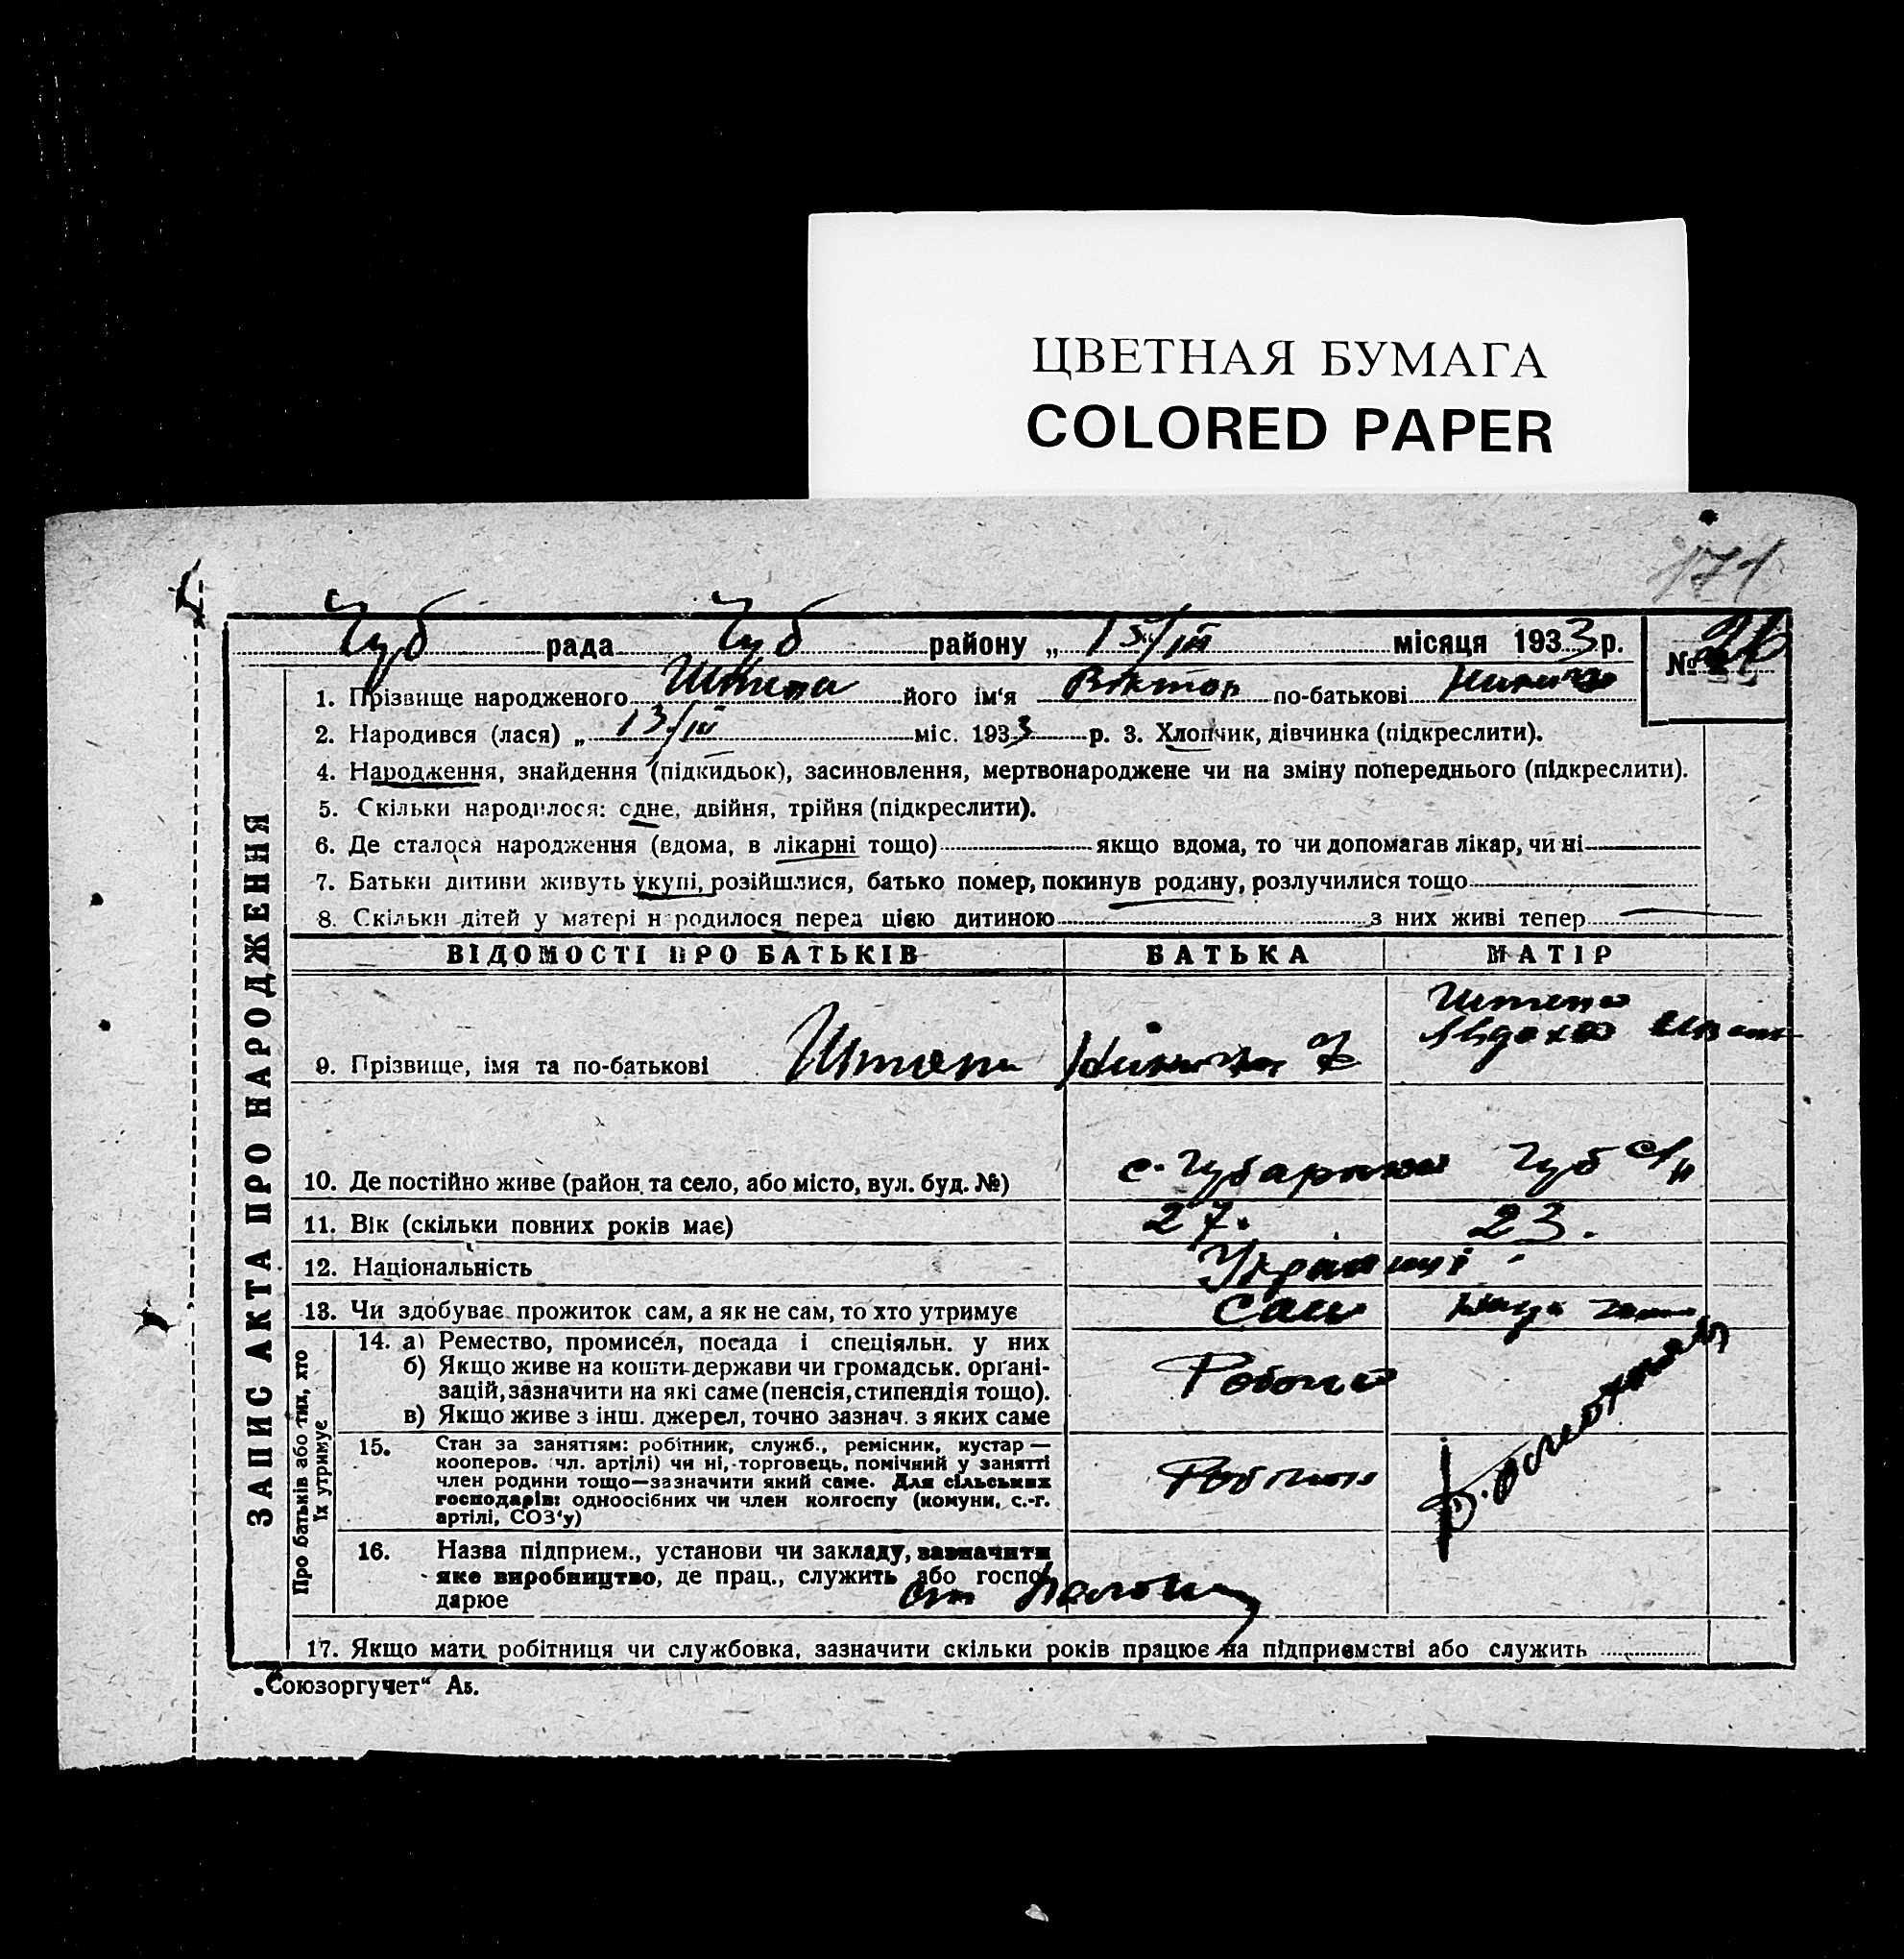 ЦВЕТНАЯ БУМАГА
COLORED PAPER
171
Чуб рада Чуб району „ 15/III місяця 1933 р. № 26
1. Прізвище народженого Штепа його ім'я Віктор по-батькові
2. Народився (лася) „ 13/III міс. 1933 р. 3. Хлопчик, дівчинка (підкреслити).
4. Народження, знайдення (підкидьок), засиновлення, мертвонароджене чи на зміну попереднього (підкреслити).
5. Скільки народилося: одне, двійня, трійня (підкреслити).
6. Де сталося народження (вдома, в лікарні тощо) якщо вдома, то чи допомагав лікар, чи ні
7. Батьки дитини живуть укупі, розійшлися, батько помер, покинув родину, розлучилися тощо
8. Скільки дітей у матері народилося перед цією дитиною з них живі тепер
ЗАПИС АКТА ПРО НАРОДЖЕННЯ
ВІДОМОСТІ ПРО БАТЬКІВ БАТЬКА МАТІР
Штепа
Авдотя Иван
9. Прізвище, імя та по-батькові Штепа
10. Де постійно живе (район та село, або місто, вул. буд. №) с. Чубар Чуб с/р
11. Вік (скільки повних років має) 27. 23.
12. Національність Українці
13. Чи здобуває прожиток сам, а як не сам, то хто утримує сам
Про батьків або тих, хто
їх утримує
14. а) Ремество, промисел, посада і спеціяльн. у них
б) Якщо живе на кошти держави чи громадськ. органі-
зацій, зазначити на які саме (пенсія, стипендія тощо). Робочий
в) Якщо живе з інш. джерел, точно зазнач. з яких саме
15. Стан за заняттям: робітник, служб., ремісник, кустар —
кооперов. (чл. артілі) чи ні, торговець, помічний у занятті
член родини тощо—зазначити який саме. Для сільських
господарів: одноосібних чи член колгоспу (комуни, с.-г.
артілі, СОЗ'у)
16. Назва підприєм., установи чи закладу, зазначити
яке виробництво, де прац., служить або госпо-
дарює
17. Якщо мати робітниця чи службовка, зазначити скільки років працює на підприємстві або служить
„Союзоргучет“ Аб.